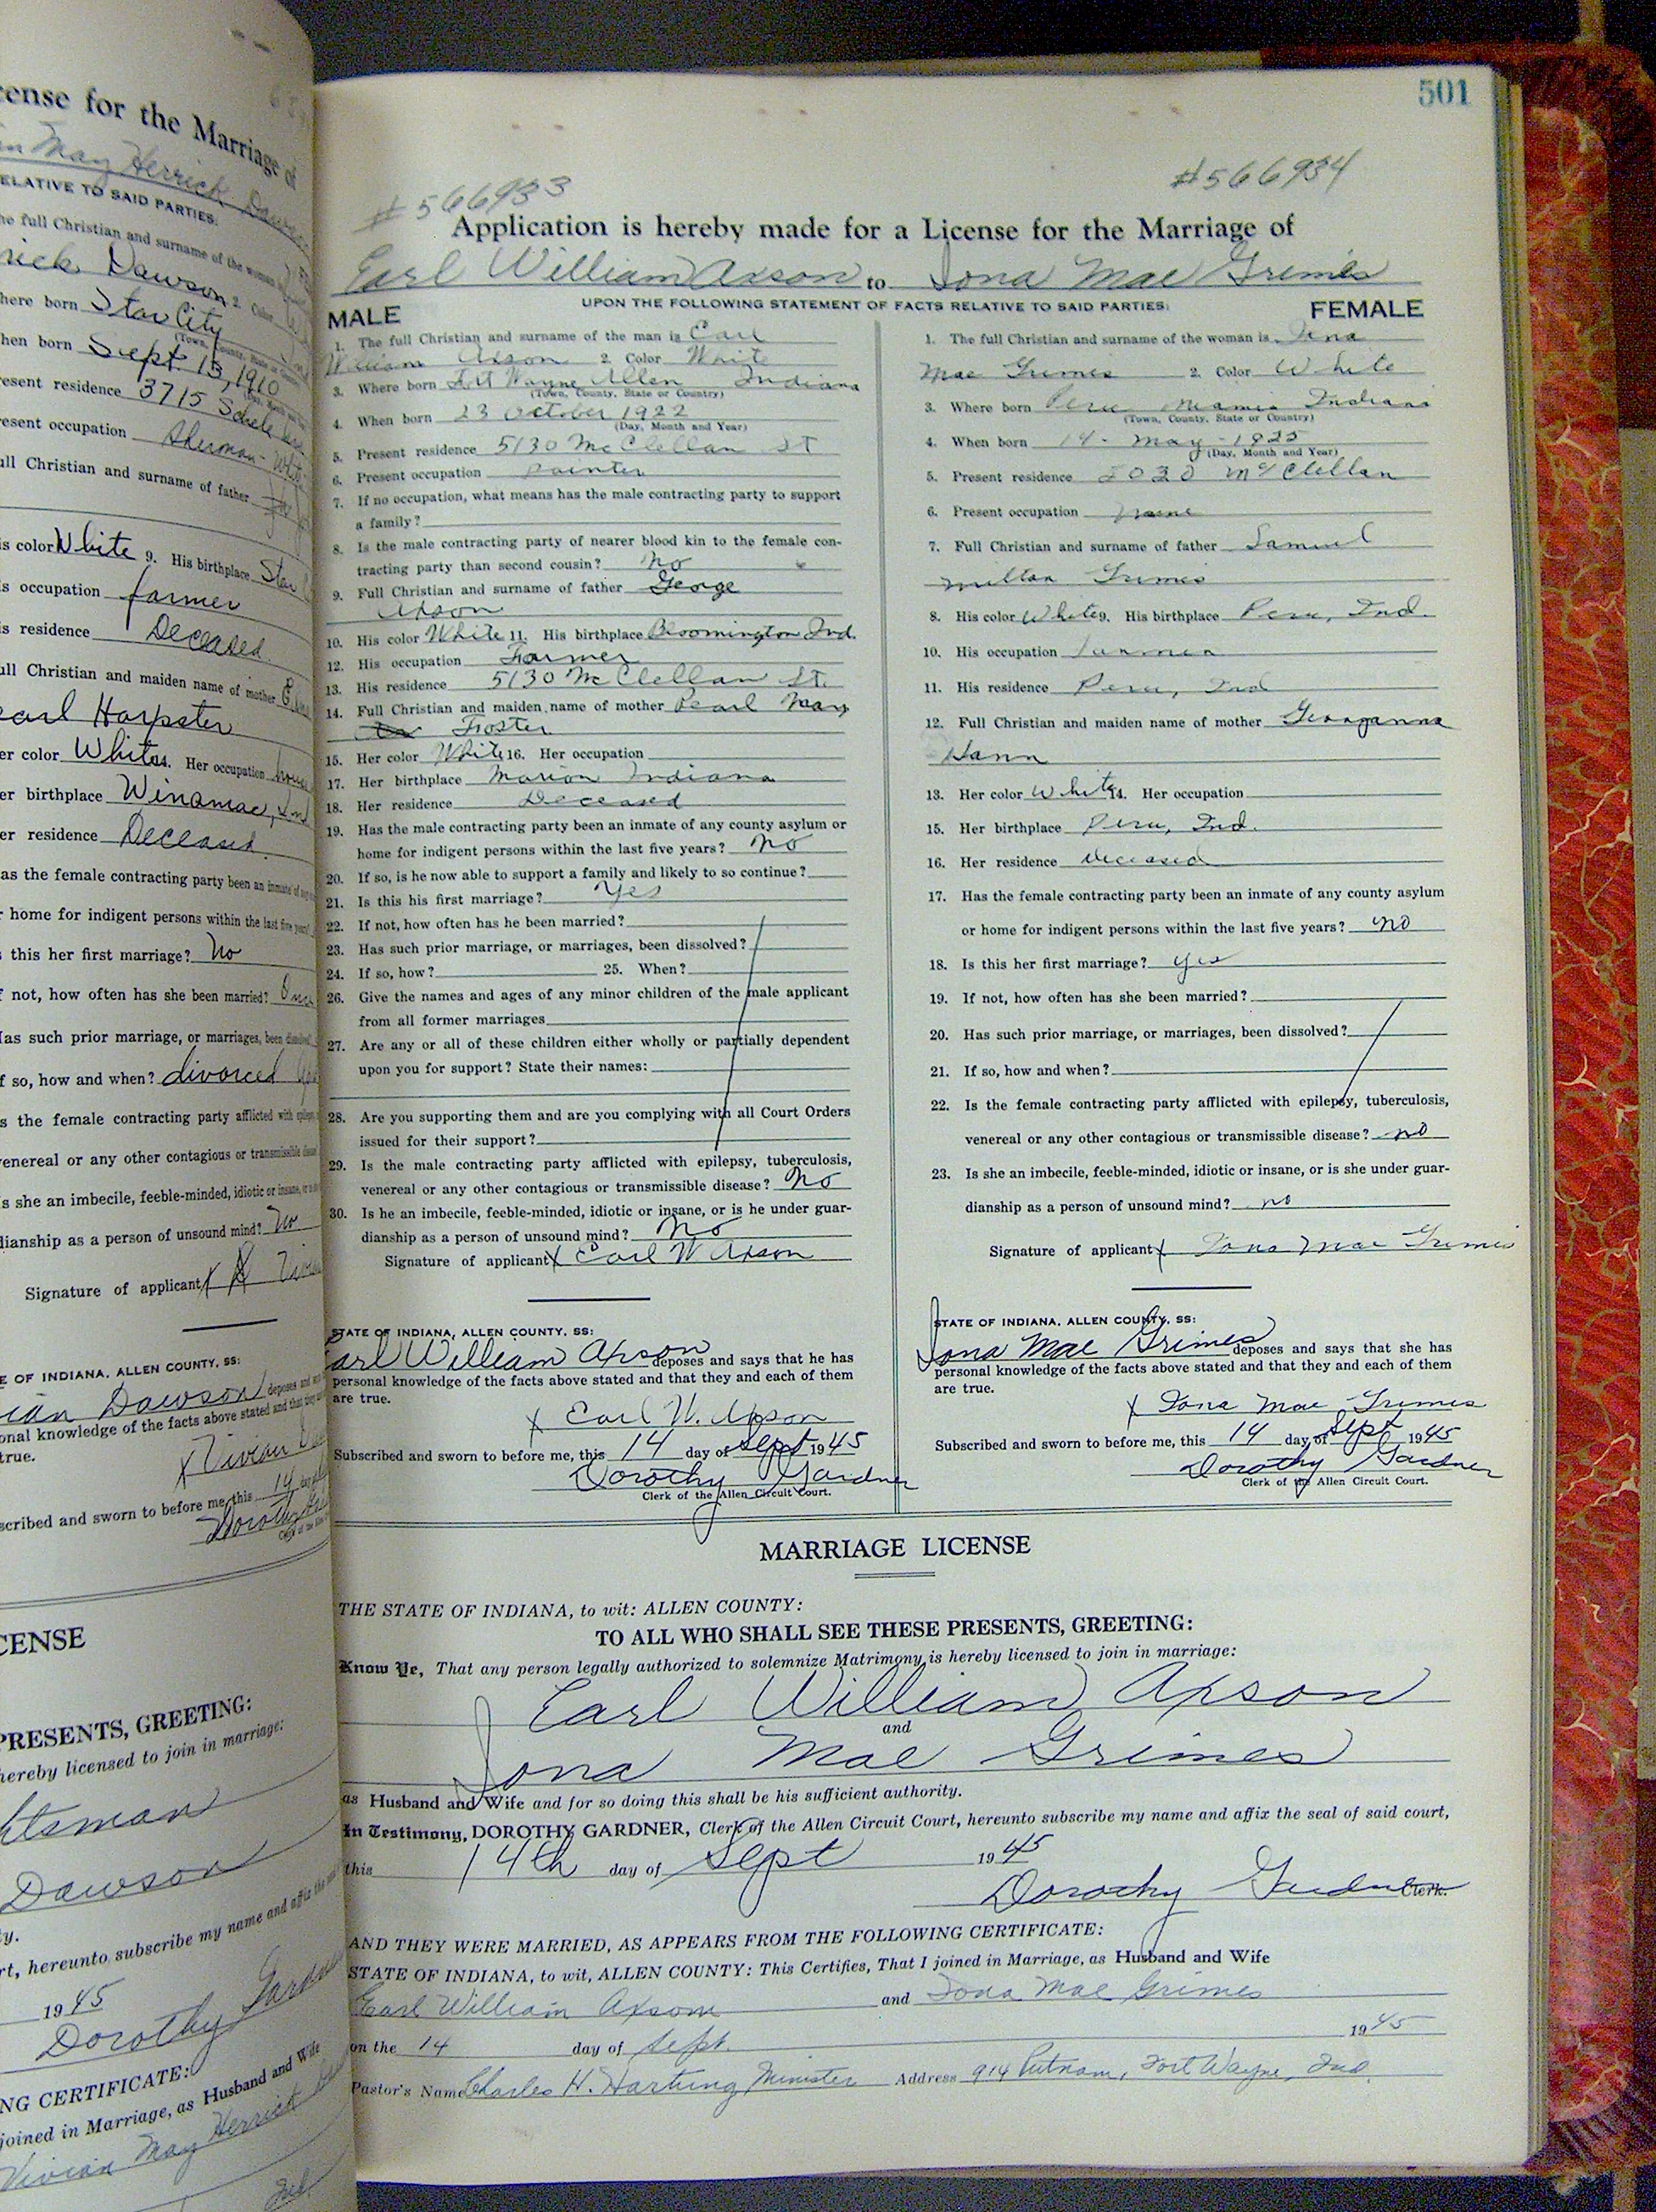 cense for the Marriage of
May Herrick
ELATIVE TO SAID PARTIES:
he full Christian and surname of the woman
rick Dawson 2. Color
here born Star City
(Town, County, State or
hen born Sept. 13, 1910
resent residence 3715
resent occupation
ull Christian and surname of father
is color White 9. His birthplace Star
is occupation farmer
is residence Deceased
ull Christian and maiden name of mother
earl Harpster
er color White 14. Her occupation
er birthplace Winamac, Ind
er residence Deceased
as the female contracting party been an inmate of any
r home for indigent persons within the last five years?
s this her first marriage? No
f not, how often has she been married? Once
Has such prior marriage, or marriages, been dissolved
f so, how and when? divorced
s the female contracting party afflicted with epilepsy
venereal or any other contagious or transmissible disease
s she an imbecile, feeble-minded, idiotic or insane, or is
dianship as a person of unsound mind? No
Signature of applicant X
E OF INDIANA, ALLEN COUNTY, SS:
ian Dawson deposes and
onal knowledge of the facts above stated and that they
true.
X Vivian
scribed and sworn to before me, this 14
Dorothy
Clerk of the
CENSE
PRESENTS, GREETING:
hereby licensed to join in marriage:
htsman
Dawson
ty.
rt, hereunto subscribe my name and affix the
1945
Dorothy Gardner
NG CERTIFICATE:
joined in Marriage, as Husband and Wife
Vivian May Herrick
Ind.
501
#566933 #566934
Application is hereby made for a License for the Marriage of
Earl William Axson to Iona Mae Grimes
UPON THE FOLLOWING STATEMENT OF FACTS RELATIVE TO SAID PARTIES:
MALE
1. The full Christian and surname of the man is Earl
William Axson 2. Color White
3. Where born Fort Wayne Allen Indiana
(Town, County, State or Country)
4. When born 23 October 1922
(Day, Month and Year)
5. Present residence 5130 McClellan St
6. Present occupation Painter
7. If no occupation, what means has the male contracting party to support
a family?
8. Is the male contracting party of nearer blood kin to the female con-
tracting party than second cousin? No
9. Full Christian and surname of father George
Axson
10. His color White 11. His birthplace Bloomington Ind.
12. His occupation Farmer
13. His residence 5130 McClellan St.
14. Full Christian and maiden name of mother Pearl May
Froster
15. Her color White 16. Her occupation
17. Her birthplace Marion Indiana
18. Her residence Deceased
19. Has the male contracting party been an inmate of any county asylum or
home for indigent persons within the last five years? No
20. If so, is he now able to support a family and likely to so continue?
21. Is this his first marriage? Yes
22. If not, how often has he been married?
23. Has such prior marriage, or marriages, been dissolved?
24. If so, how? 25. When?
26. Give the names and ages of any minor children of the male applicant
from all former marriages
27. Are any or all of these children either wholly or partially dependent
upon you for support? State their names:
28. Are you supporting them and are you complying with all Court Orders
issued for their support?
29. Is the male contracting party afflicted with epilepsy, tuberculosis,
venereal or any other contagious or transmissible disease? No
30. Is he an imbecile, feeble-minded, idiotic or insane, or is he under guar-
dianship as a person of unsound mind? No
Signature of applicant X Earl W Axson
STATE OF INDIANA, ALLEN COUNTY, SS:
Earl William Axson deposes and says that he has
personal knowledge of the facts above stated and that they and each of them
are true.
X Earl W. Axson
Subscribed and sworn to before me, this 14 day of Sept 1945
Dorothy Gardner
Clerk of the Allen Circuit Court.
FEMALE
1. The full Christian and surname of the woman is Iona
Mae Grimes 2. Color White
3. Where born Peru Miami Indiana
(Town, County, State or Country)
4. When born 14 - May - 1925
(Day, Month and Year)
5. Present residence 2030 McClellan
6. Present occupation
7. Full Christian and surname of father Samuel
Milton Grimes
8. His color White 9. His birthplace Peru, Ind.
10. His occupation Farmer
11. His residence Peru, Ind
12. Full Christian and maiden name of mother Georganna
Hann
13. Her color White 14. Her occupation
15. Her birthplace Peru, Ind.
16. Her residence deceased
17. Has the female contracting party been an inmate of any county asylum
or home for indigent persons within the last five years? no
18. Is this her first marriage? yes
19. If not, how often has she been married?
20. Has such prior marriage, or marriages, been dissolved?
21. If so, how and when?
22. Is the female contracting party afflicted with epilepsy, tuberculosis,
venereal or any other contagious or transmissible disease? no
23. Is she an imbecile, feeble-minded, idiotic or insane, or is she under guar-
dianship as a person of unsound mind? no
Signature of applicant X Iona Mae Grimes
STATE OF INDIANA, ALLEN COUNTY, SS:
Iona Mae Grimes deposes and says that she has
personal knowledge of the facts above stated and that they and each of them
are true.
X Iona Mae Grimes
Subscribed and sworn to before me, this 14 day of Sept 1945
Dorothy Gardner
Clerk of the Allen Circuit Court.
MARRIAGE LICENSE
THE STATE OF INDIANA, to wit: ALLEN COUNTY:
TO ALL WHO SHALL SEE THESE PRESENTS, GREETING:
Know Ye, That any person legally authorized to solemnize Matrimony is hereby licensed to join in marriage:
Earl William Axson
and
Iona Mae Grimes
as Husband and Wife and for so doing this shall be his sufficient authority.
In Testimony, DOROTHY GARDNER, Clerk of the Allen Circuit Court, hereunto subscribe my name and affix the seal of said court,
this 14th day of Sept 1945
Dorothy Gardner Clerk.
AND THEY WERE MARRIED, AS APPEARS FROM THE FOLLOWING CERTIFICATE:
STATE OF INDIANA, to wit, ALLEN COUNTY: This Certifies, That I joined in Marriage, as Husband and Wife
Earl William Axsom and Iona Mae Grimes
on the 14 day of Sept. 1945
Pastor's Name Charles H. Hartung, Minister Address 914 Putnam, Fort Wayne, Ind.